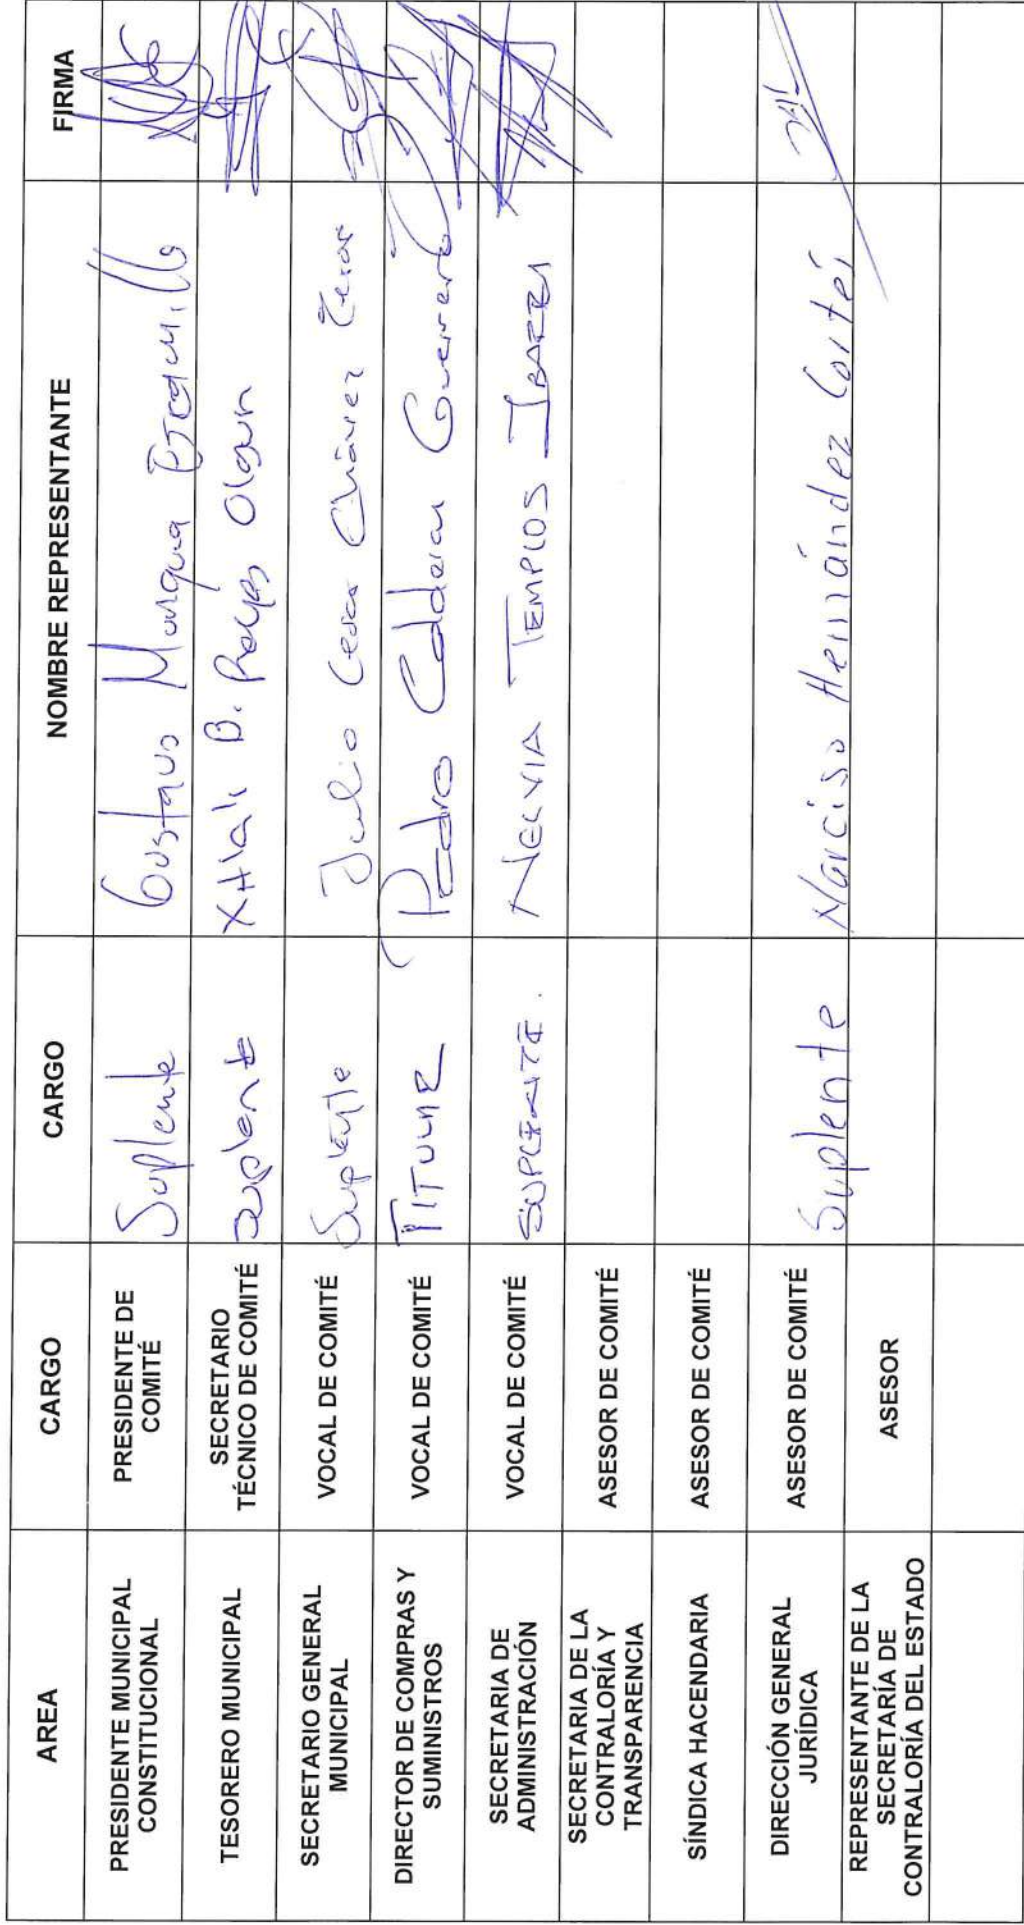 AREA CARGO CARGO NOMBRE REPRESENTANTE FIRMA
PRESIDENTE MUNICIPAL
CONSTITUCIONAL
PRESIDENTE DE
COMITÉ
Suplente
Gustavo
TESORERO MUNICIPAL
SECRETARIO
TÉCNICO DE COMITÉ
suplente
Xitlali B. Reyes Olguin
SECRETARIO GENERAL
MUNICIPAL
VOCAL DE COMITÉ
Suplente
Julio Cesar Chávez
DIRECTOR DE COMPRAS Y
SUMINISTROS
VOCAL DE COMITÉ
TITULAR
Pedro Calderon Guerrero
SECRETARIA DE
ADMINISTRACIÓN
VOCAL DE COMITÉ
SUPLENTE.
TEMPLOS IBARRA
SECRETARIA DE LA
CONTRALORÍA Y
TRANSPARENCIA
ASESOR DE COMITÉ
SÍNDICA HACENDARIA
ASESOR DE COMITÉ
DIRECCIÓN GENERAL
JURÍDICA
ASESOR DE COMITÉ
Suplente
Narciso Hernández Cortés
REPRESENTANTE DE LA
SECRETARÍA DE
CONTRALORÍA DEL ESTADO
ASESOR